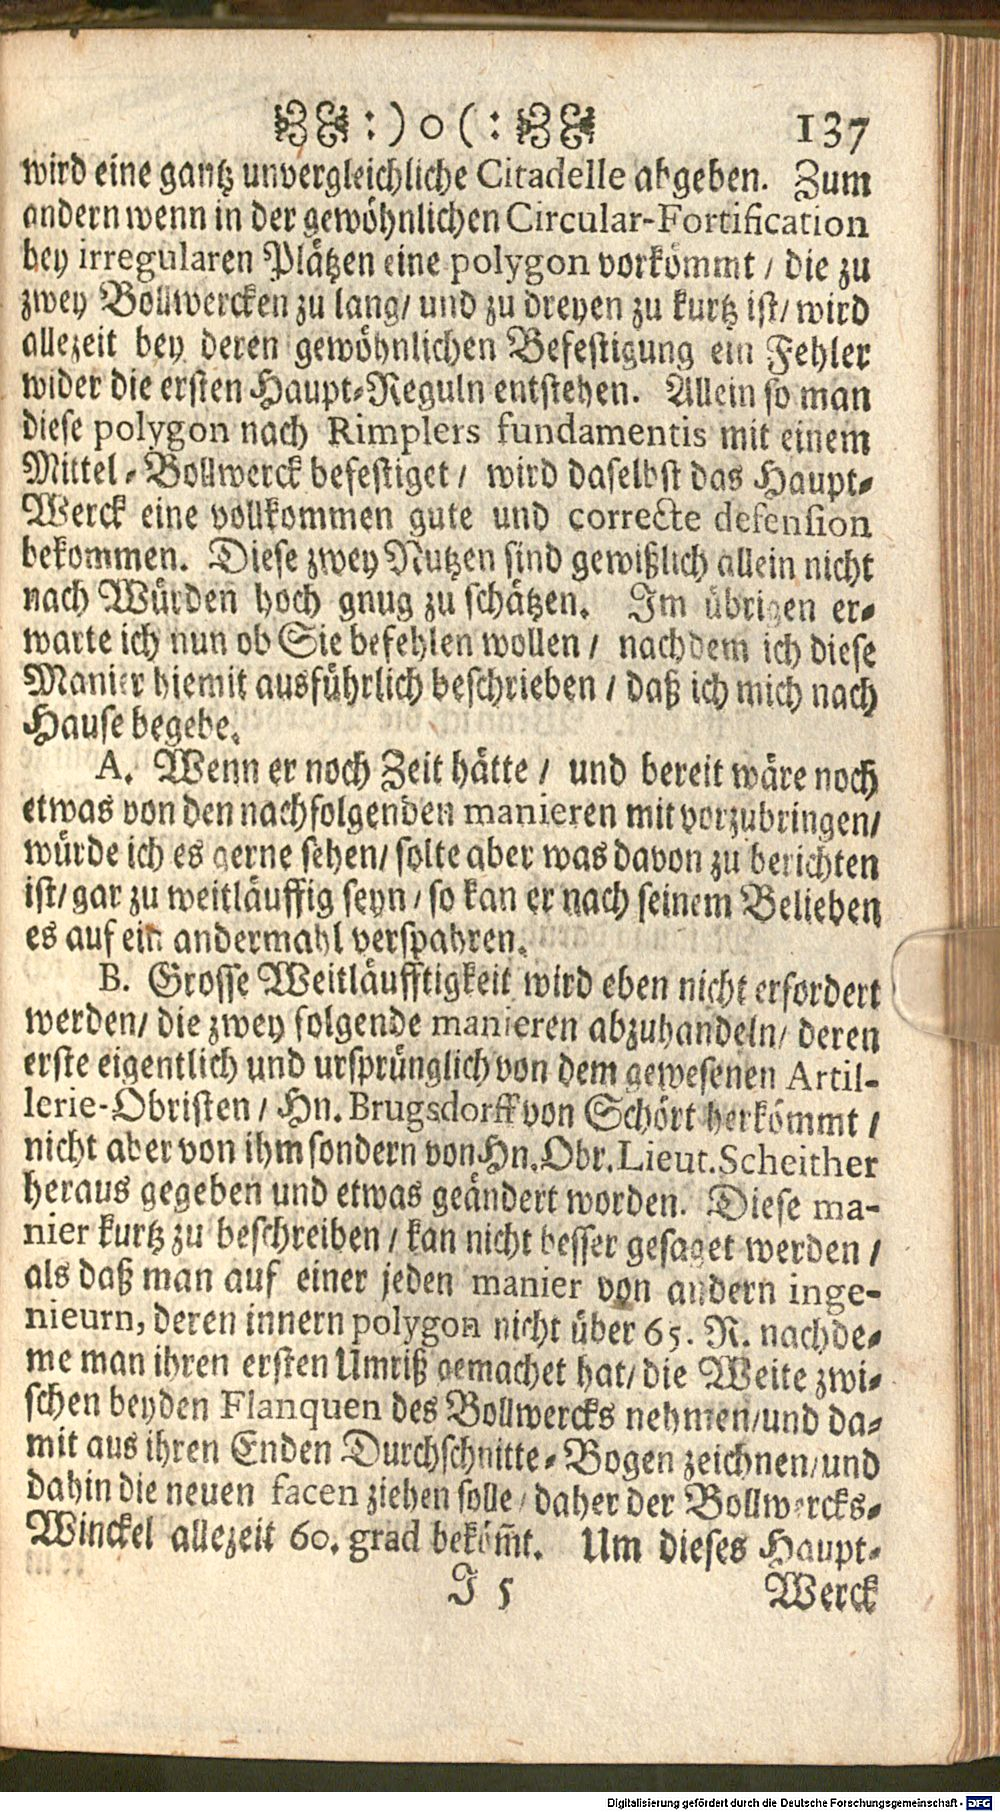 :) o (: 137
wird eine gantz unvergleichliche Citadelle abgeben. Zum
andern wenn in der gewöhnlichen Circular-Fortification
bey irregularen Plätzen eine polygon vorkömmt / die zu
zwey Bollwercken zu lang / und zu dreyen zu kurtz ist / wird
allezeit bey deren gewöhnlichen Befestigung ein Fehler
wider die ersten Haupt-Reguln entstehen. Allein so man
diese polygon nach Rimplers fundamentis mit einem
Mittel-Bollwerck befestiget / wird daselbst das Haupt-
Werck eine vollkommen gute und correcte defension
bekommen. Diese zwey Nutzen sind gewißlich allein nicht
nach Würden hoch gnug zu schätzen. Im übrigen er-
warte ich nun ob Sie befehlen wollen / nachdem ich diese
Manier hiemit ausführlich beschrieben / daß ich mich nach
Hause begebe.
A. Wenn er noch Zeit hätte / und bereit wäre noch
etwas von den nachfolgenden manieren mit vorzubringen /
würde ich es gerne sehen / solte aber was davon zu berichten
ist / gar zu weitläuffig seyn / so kan er nach seinem Belieben
es auf ein andermahl verspahren.
B. Grosse Weitläufftigkeit wird eben nicht erfordert
werden / die zwey folgende manieren abzuhandeln / deren
erste eigentlich und ursprünglich von dem gewesenen Artil-
lerie-Obristen / Hn. Brugsdorff von Schört herkömmt /
nicht aber von ihm sondern von Hn. Obr. Lieut. Scheither
heraus gegeben und etwas geändert worden. Diese ma-
nier kurtz zu beschreiben / kan nicht besser gesaget werden /
als daß man auf einer jeden manier von andern inge-
nieurn, deren innern polygon nicht über 65. R. nachde-
me man ihren ersten Umriß gemachet hat / die Weite zwi-
schen beyden Flanquen des Bollwercks nehmen / und da-
mit aus ihren Enden Durchschnitte-Bogen zeichnen / und
dahin die neuen facen ziehen solle / daher der Bollwercks-
Winckel allezeit 60. grad beköm̃t. Um dieses Haupt-
J 5 Werck
Digitalisierung gefördert durch die Deutsche Forschungsgemeinschaft - DFG